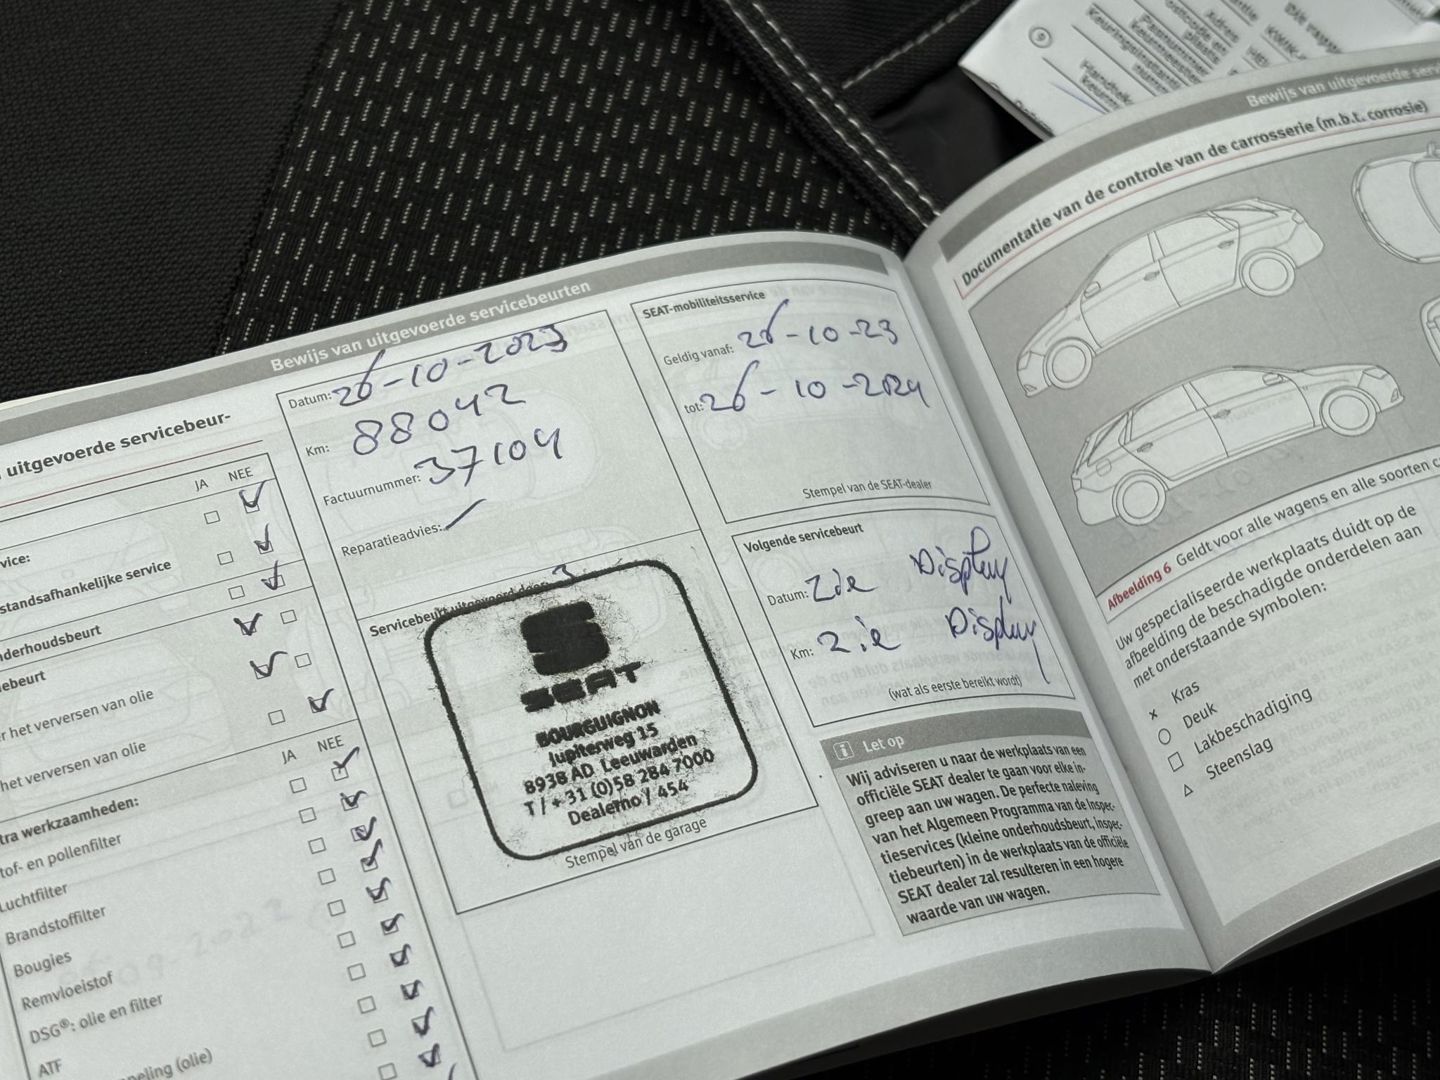 Bewijs van uitgevoerde servicebeurten
uitgevoerde servicebeur-
JA NEE
vice:
standsafhankelijke service
nderhoudsbeurt
iebeurt
r het verversen van olie
het verversen van olie
JA NEE
tra werkzaamheden:
tof- en pollenfilter
Luchtfilter
Brandstoffilter
Bougies
Remvloeistof
DSG®: olie en filter
ATF
peling (olie)
Datum: 26-10-2023
Km: 88042
Factuurnummer: 37104
Reparatieadvies:
Servicebeurt uitgevoerd door:
SEAT
BOURGUIGNON
Jupiterweg 15
8938 AD Leeuwarden
T / +31 (0)58 284 7000
Dealerno / 454
Stempel van de garage
SEAT-mobiliteitsservice
Geldig vanaf: 26-10-23
tot: 26-10-2024
Stempel van de SEAT-dealer
Volgende servicebeurt
Datum: Zie Display
Km: Zie Display
(wat als eerste bereikt wordt)
i Let op
Wij adviseren u naar de werkplaats van een
officiële SEAT dealer te gaan voor elke in-
greep aan uw wagen. De perfecte naleving
van het Algemeen Programma van de Inspec-
tieservices (kleine onderhoudsbeurt, inspec-
tiebeurten) in de werkplaats van de officiële
SEAT dealer zal resulteren in een hogere
waarde van uw wagen.
Bewijs van uitgevoerde serv
Documentatie van de controle van de carrosserie (m.b.t. corrosie)
Afbeelding 6 Geldt voor alle wagens en alle soorten c
Uw gespecialiseerde werkplaats duidt op de
afbeelding de beschadigde onderdelen aan
met onderstaande symbolen:
x Kras
○ Deuk
□ Lakbeschadiging
△ Steenslag